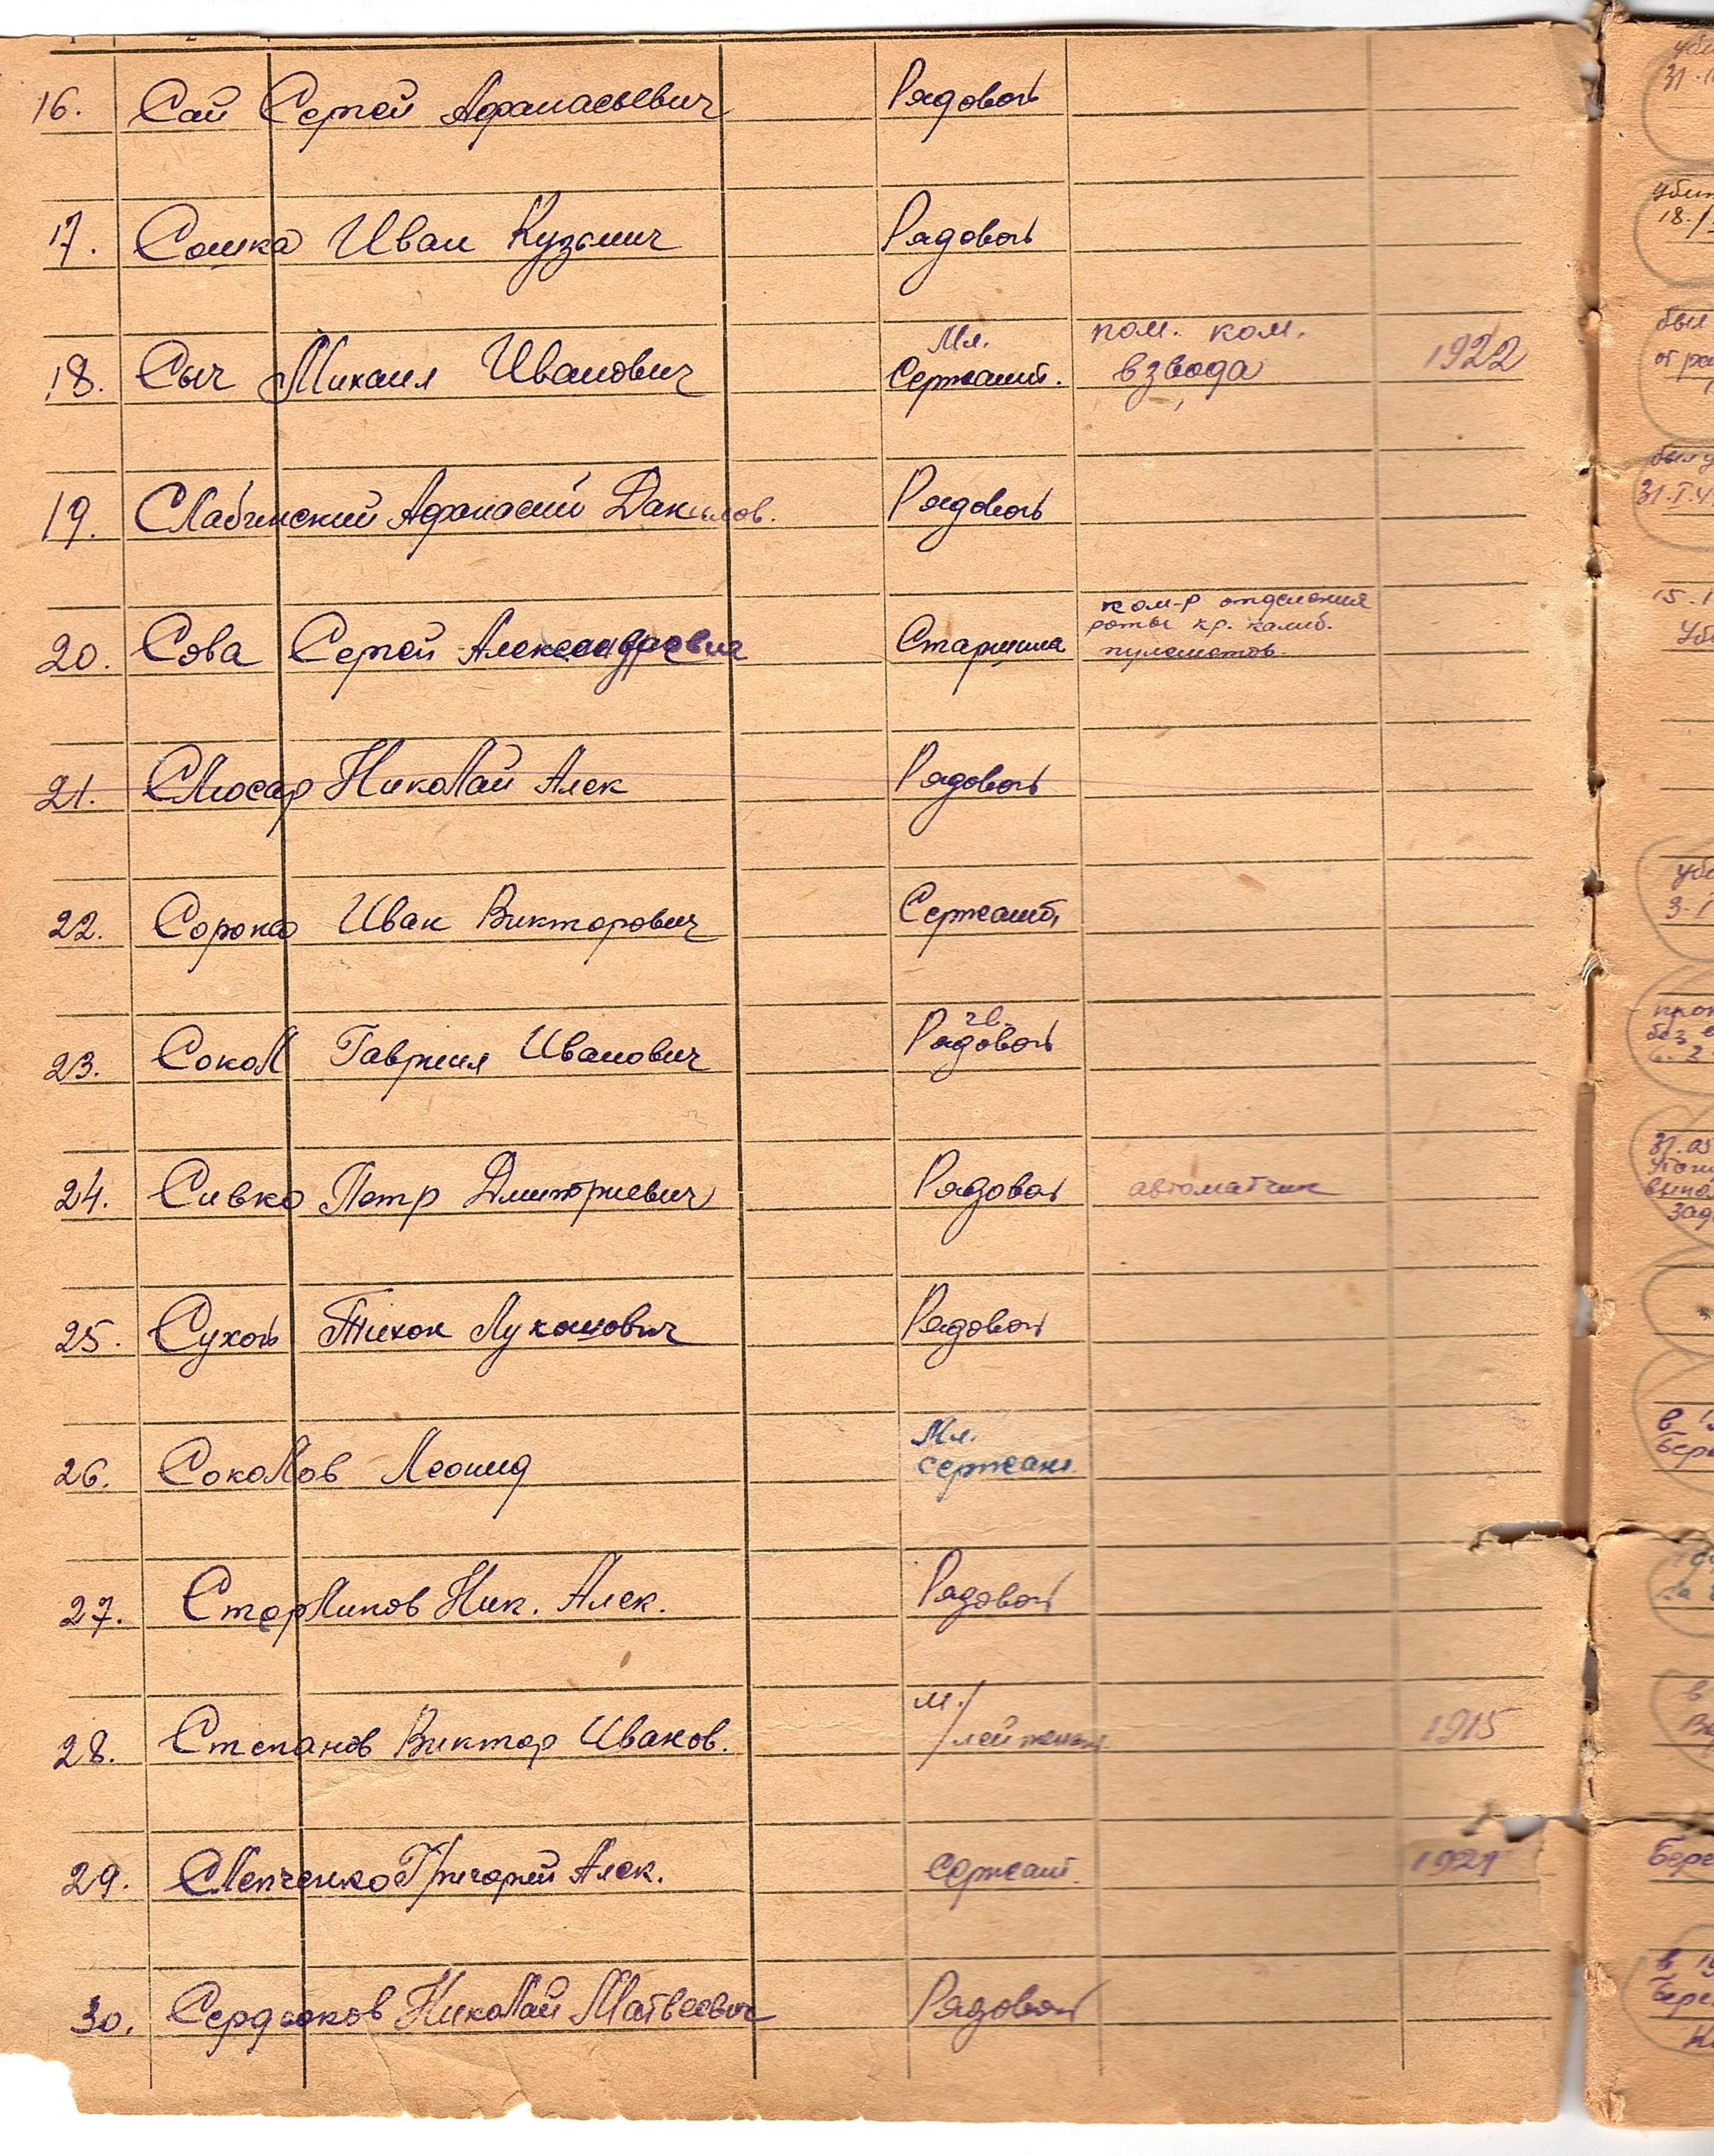 16. Сай Сергей Афанасьевич Рядовой
17. Сошка Иван Кузьмич Рядовой
18. Сыч Михаил Иванович Мл. Сержант. пом. ком. взвода 1922
19. Слабинский Афанасий Данилов. Рядовой
20. Сова Сергей Александрович Старшина ком-р отделения
роты кр. калиб.
пулеметов
21. Слюсар Николай Алек Рядовой
22. Сороко Иван Викторович Сержант
23. Сокол Гавриил Иванович гв. Рядовой
24. Сивко Петр Дмитриевич Рядовой автоматчик
25. Сухой Тихон Лукашович Рядовой
26. Соколов Леонид Мл. сержант
27. Стерликов Ник. Алек. Рядовой
28. Степанов Виктор Иванов. м./лейтенант 1915
29. Слепченко Григорий Алек. сержант. 1921
30. Сердюков Николай Матвеевич Рядовой